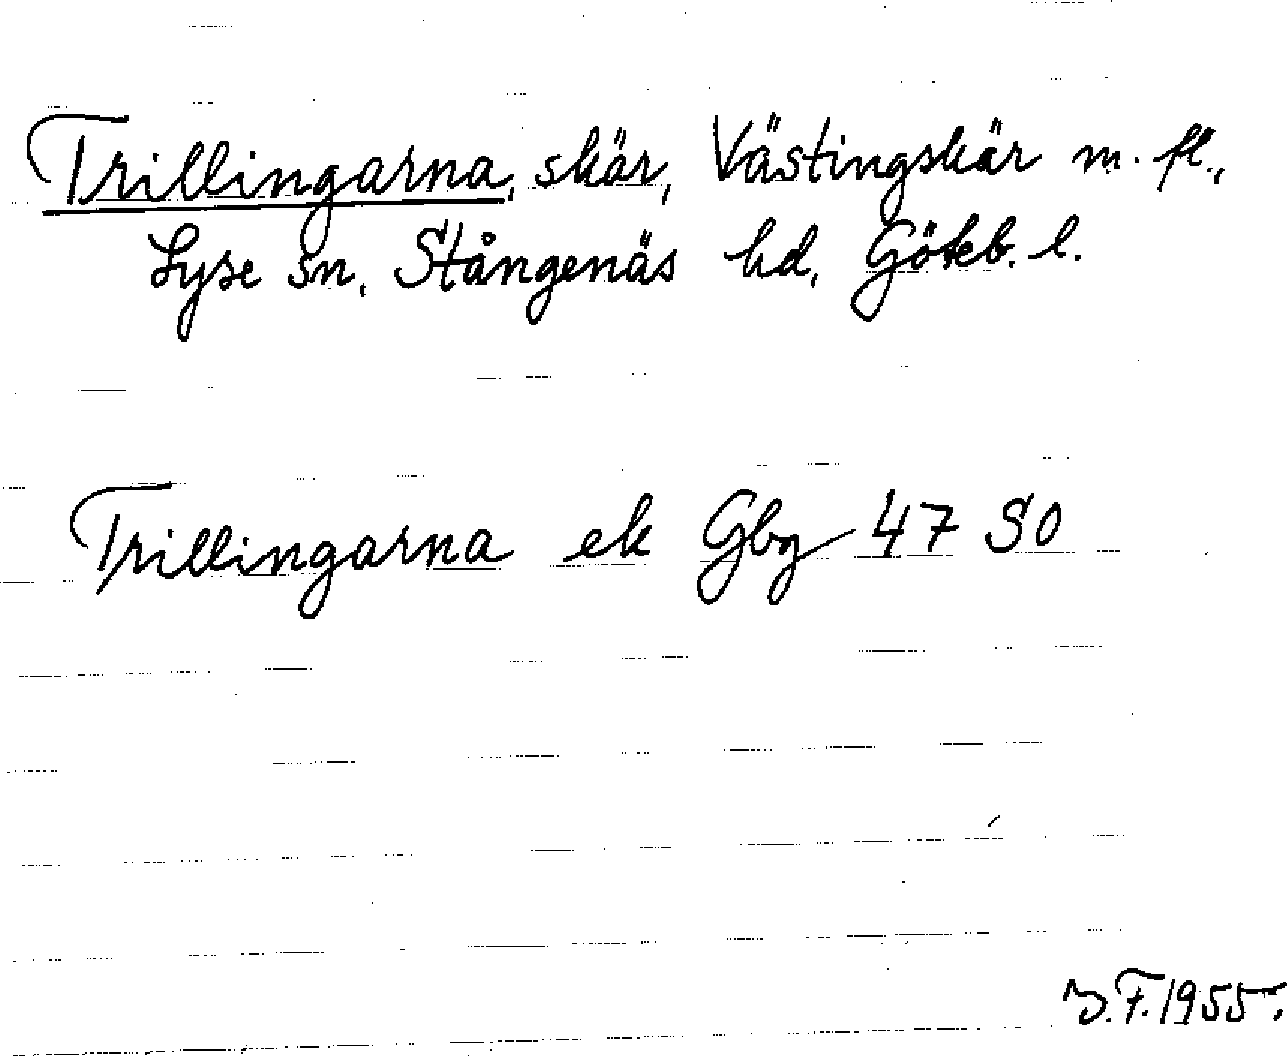 Trillingarna, skär, Västingskär m. fl.,
Lyse sn, Stångenäs hd, Göteb. l.
Trillingarna ek Gbg 47 SO
J.F. 1955.